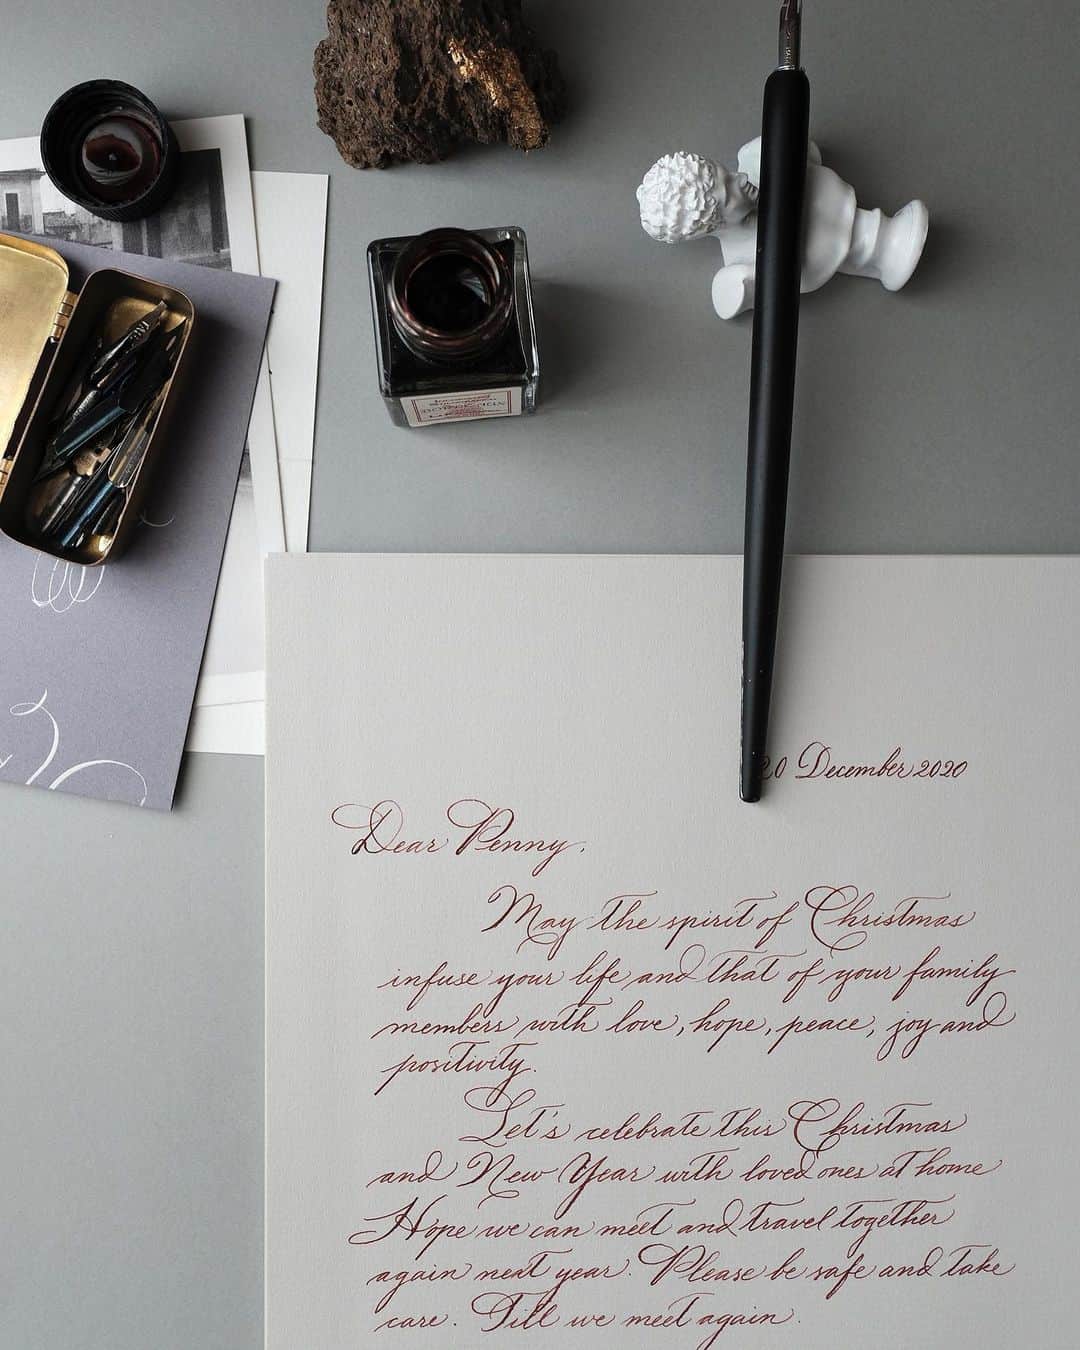 20 December 2020
Dear Penny,
May the spirit of Christmas
infuse your life and that of your family
members with love, hope, peace, joy and
positivity.
Let's celebrate this Christmas
and New Year with loved ones at home
Hope we can meet and travel together
again next year. Please be safe and take
care. Till we meet again.